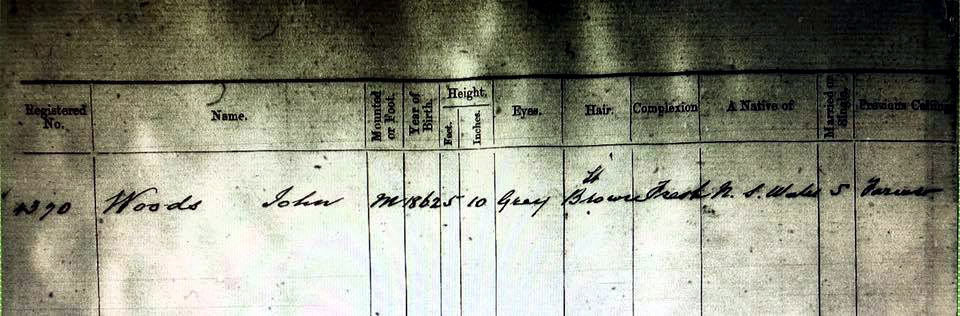 Registered No. Name. Mounted or Foot. Year of Birth. Height. Feet. Inches. Eyes. Hair. Complexion A Native of Married or Single. Previous
Woods John M 1862 5 10 Grey Brown Fresh N. S. Wales S